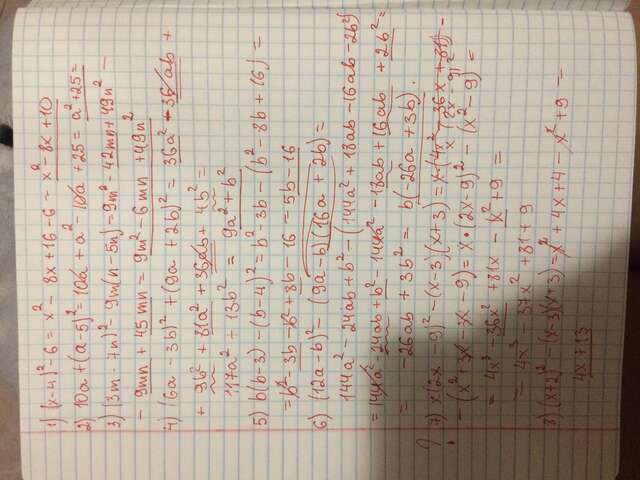 1) (x-4)²-6 = x² - 8x+16-6 = x²-8x+10
2) 10a+(a-5)²= 10a + a² - 10a + 25 = a²+25=
3) (3m - 7n)² - 9m(n-5n)=9m² - 42mn + 49n² -
- 9mn + 45 mn = 9m² - 6 mn + 49n²
4) (6a - 3b)² + (9a + 2b)² = 36a² - 36 ab +
+ 9b² + 81a² + 36ab + 4b² =
117a² - 13b² = 9a² + b²
5) b(b-3) - (b-4)² = b² - 3b - (b² - 8b + 16) =
= b² - 3b - b² + 8b - 16 = 5b - 16
6) (12a - b)² - (9a - b)(16a + 2b) =
144a² - 24ab + b² - (144a² + 18ab - 16ab - 2b²)
= 144a² - 24ab + b² - 144a² - 18ab + 16ab + 2b² =
= -26ab + 3b² = b(-26a + 3b).
? 7) x(2x - 9)² - (x-3)(x+3) = x·(4x² - 36x + 81) -
x (2x - 9)²
- (x² + 3x - 3x - 9) = x·(2x-9)² - (x² - 9) =
= 4x³ - 36x² + 81x - x² + 9 =
= 4x³ - 37x² + 81 + 9
8) (x+2)² - (x-3)(x+3) = x² + 4x + 4 - x² + 9 =
4x + 13